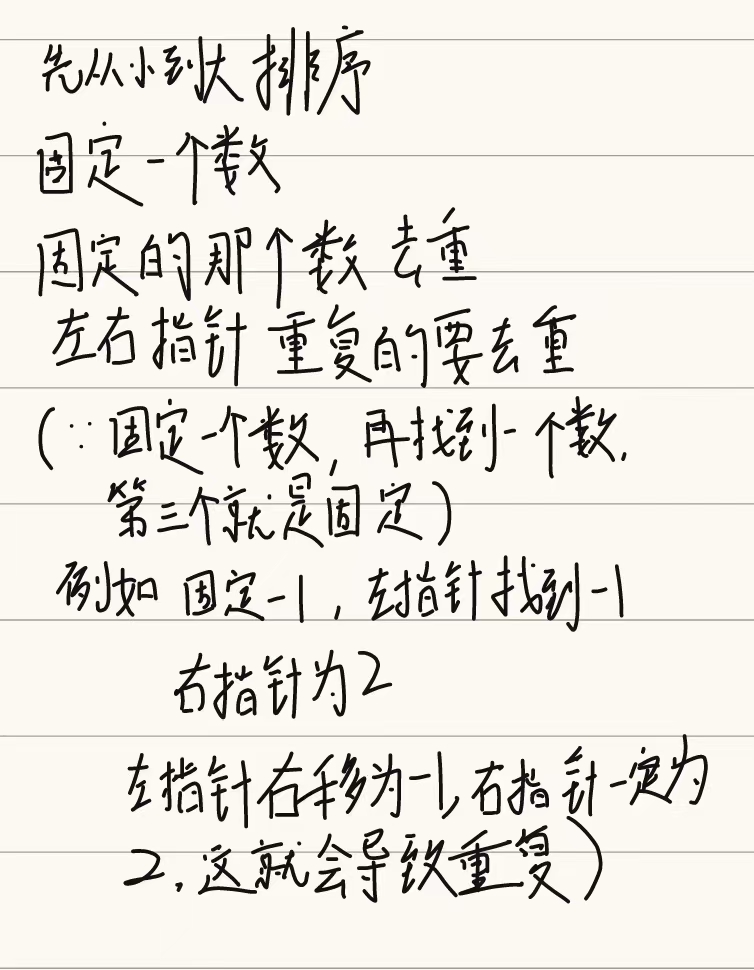 先从小到大排序
固定一个数
固定的那个数 去重
左右指针 重复的要去重
(∵固定一个数,再找到一个数.
第三个就是固定)
例如 固定-1,左指针找到-1
右指针为2
左指针右移为-1,右指针一定为
2.这就会导致重复)